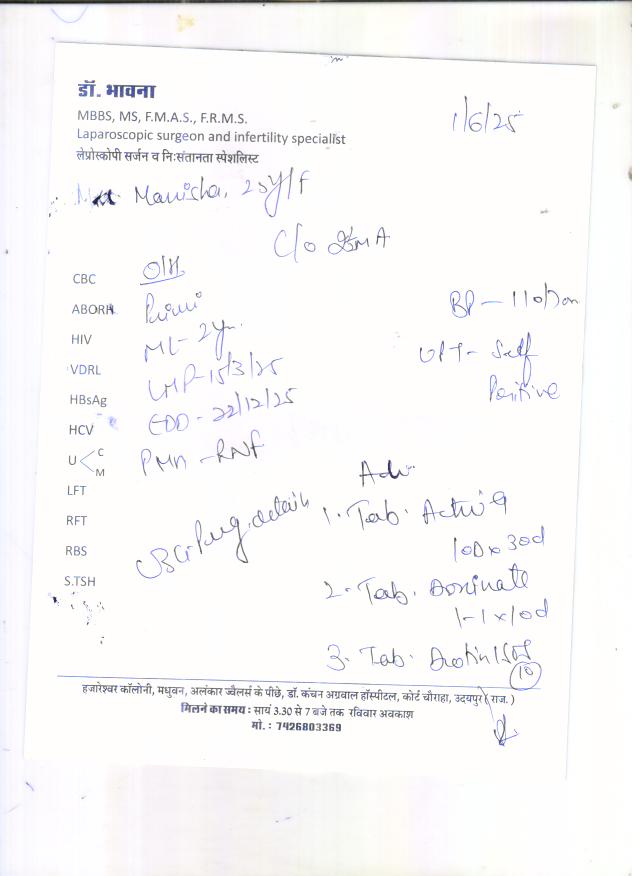 डॉ. भावना
MBBS, MS, F.M.A.S., F.R.M.S.
Laparoscopic surgeon and infertility specialist
लेप्रोस्कोपी सर्जन व निःसंतानता स्पेशलिस्ट
1/6/25
Manisha, 25y/F
C/o
CBC O/H
ABORH Primi
BP - 110/70
HIV ML - 2yr.
UPT - Self Positive
VDRL LMP - 15/3/25
HBsAg EDD - 22/12/25
HCV
U < C M PMH -
LFT Adv
RFT
1. Tab.
100 x 30d
RBS
S.TSH
2. Tab. Doxinate
1-1 x 10d
3. Tab.
10
हजारेश्वर कॉलोनी, मधुवन, अलंकार ज्वैलर्स के पीछे, डॉ. कंचन अग्रवाल हॉस्पीटल, कोर्ट चौराहा, उदयपुर ( राज. )
मिलने का समय : सायं 3.30 से 7 बजे तक रविवार अवकाश
मो. : 7426803369